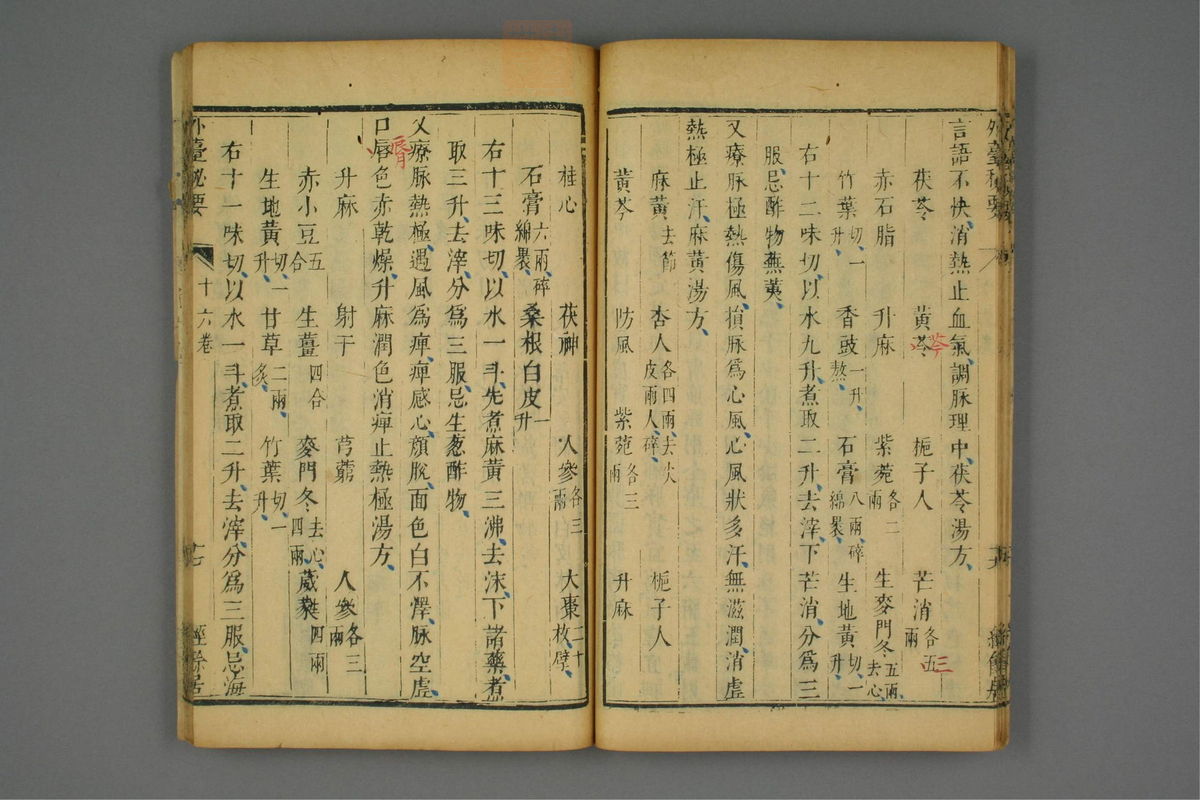 外臺秘要
言語不快、消熱止血氣、調脉理中、茯苓湯方、
茯苓 黃芩 梔子人 芒消各五兩
芩 三
赤石脂 升麻 紫菀各二兩 生麥門冬五兩去心
竹葉切、一升、 香豉一升、熬、 石膏八兩碎綿裹、 生地黃切、一
右十二味切、以水九升、煮取二升、去滓、下芒消、分爲三
服、忌酢物蕪荑、
又療脉極熱傷風、損脉爲心風、心風狀多汗、無滋潤、消虛
熱極止汗、麻黃湯方、
麻黃去節 杏人各四兩、去尖皮兩人、碎、 梔子人
黃芩 防風 紫菀各三兩 升麻
桂心 茯神 人參各三兩 大棗二十枚、擘、
石膏六兩、碎綿裹、 桑根白皮一升
右十三味切、以水一斗、先煮麻黃三沸、去沫、下諸藥、煮
取三升、去滓、分爲三服、忌生葱酢物、
又療脉熱極、遇風爲痺、痺感心、顏脫、面色白不澤、脉空虛、
口唇色赤乾燥、升麻潤色消痺止熱極湯方、
脣
升麻 射干 芎藭 人參各三兩
赤小豆五合 生薑四合 麥門冬去心、四兩、 葳蕤四兩
生地黃切、一升、 甘草二兩、炙、 竹葉切、一升、
右十一味切、以水一斗、煮取二升、去滓、分爲三服、忌海
外臺秘要 十六卷 十七 經餘居